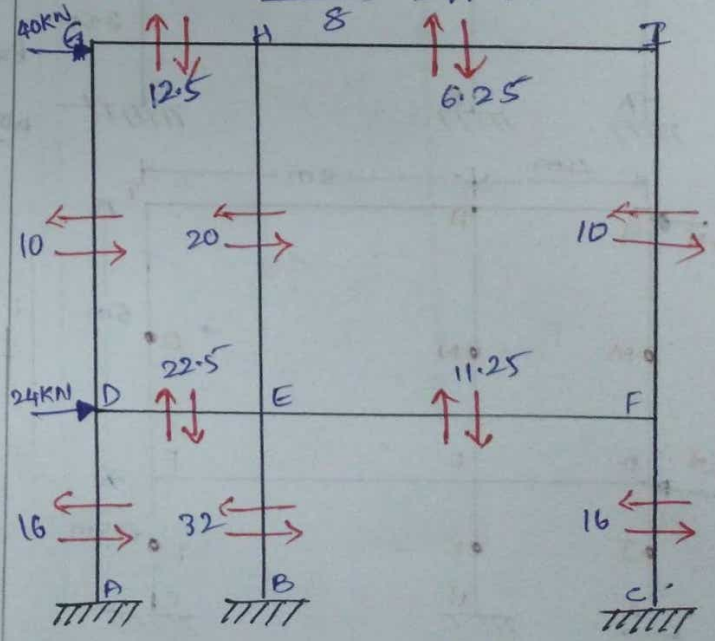 40KN
G
H
8
I
12.5
6.25
10
20
10
22.5
11.25
24KN
D
E
F
16
32
16
A
B
C